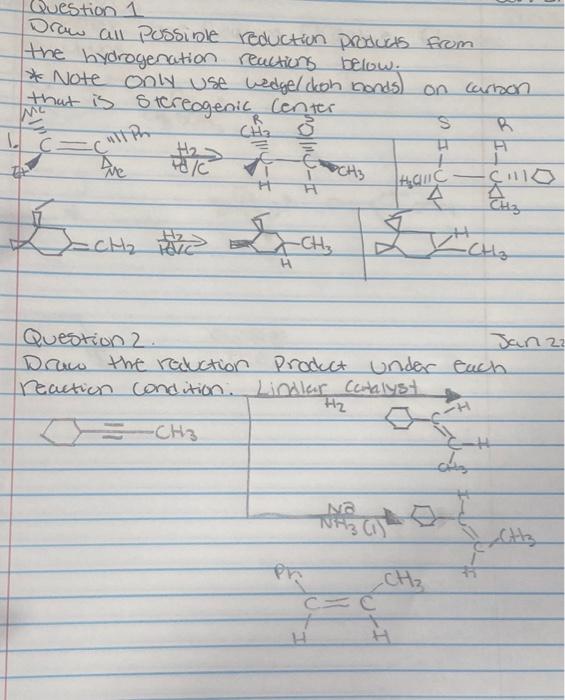 Question 1
Draw all possible reduction products from
the hydrogenation reactions below.
* Note only use wedge/dash bonds on carbon
that is stereogenic center
Me R S S R
CH3 H H
1. C = C Ph H2 C C CH3 H3C C C
Et Me Pd/C H H CH3
= CH2 H2 CH3 H
Pd/C H CH3
Question 2. Jan 22
Draw the reduction product under each
reaction condition. Lindlar Catalyst
H2 C H
CH3 C H
CH3
Na H
NH3 (l) C
C CH3
H
Ph CH3
C = C
H H